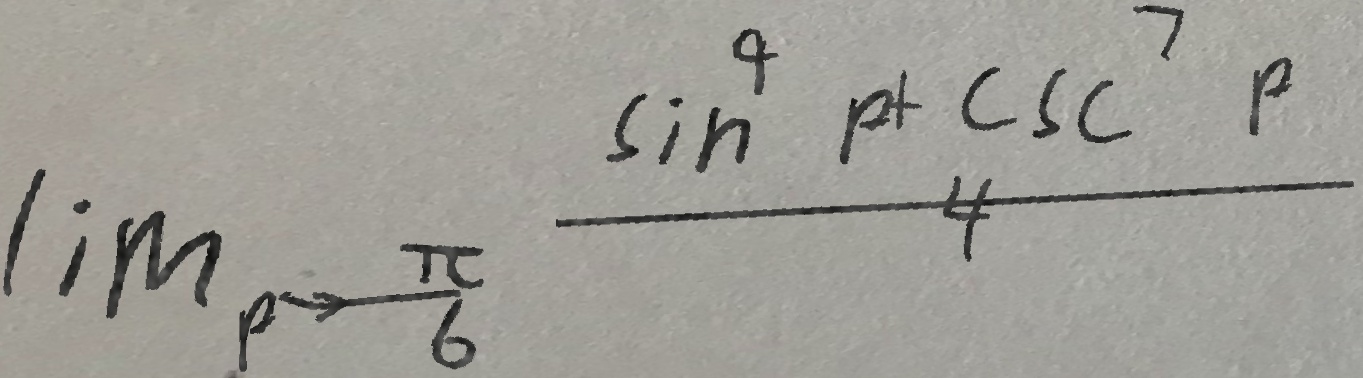 \lim_{p \to \frac{\pi}{6}} \frac{\sin^{9} p + \csc^{7} p}{4}